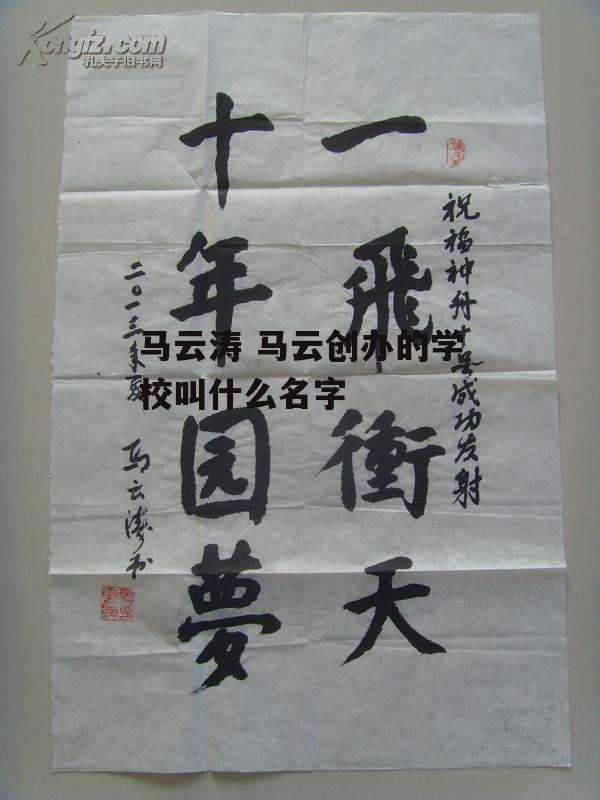 Kongfz.com
孔夫子旧书网
祝福神舟十号成功发射
一飛衝天
十年园夢
二〇一三年夏 马云涛书
马云涛 马云创办的学
校叫什么名字